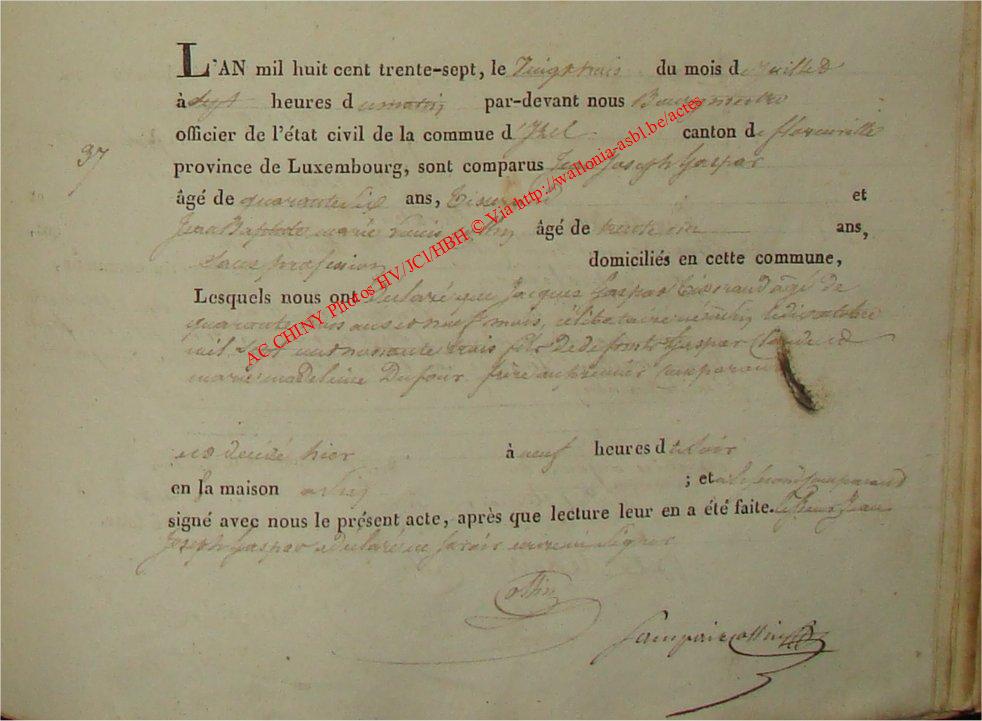 L'AN mil huit cent trente-sept, le Vingt trois du mois de Juillet
à sept heures du matin par-devant nous Bourgmestre
officier de l'état civil de la commue d'Izel canton de florenville
37
province de Luxembourg, sont comparus Jean Joseph Gaspar
âgé de quarante six ans, Tisserand et
Jean Baptiste marie Louis âgé de trente ans,
Sans profession domiciliés en cette commune,
Lesquels nous ont déclaré que Jacques Gaspar Tisserand agé de
quarante trois ans et neuf mois, célibataire né le dix octobre
mil Sept cent nonante trois fils de defunts Gaspar Claude et
marie madeleine Dufour frère au premier Comparant
est décédé hier à neuf heures du soir
en la maison ; et le second comparant
signé avec nous le présent acte, après que lecture leur en a été faite. Jean
Joseph Gaspar a déclaré ne savoir écrire ni Signer
AC CHINY Photos HV/JCI/HBH © Via http://wallonia-asbl.be/actes